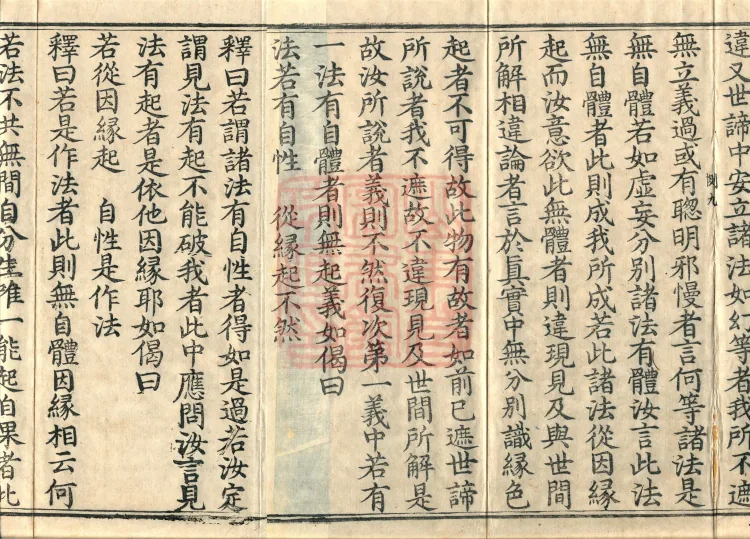 違又世諦中安立諸法如幻等者我所不遮
無立義過或有聰明邪慢者言何等諸法是
無自體若如虛妄分別諸法有體汝言此法
無自體者此則成我所成若此諸法從因緣
起而汝意欲此無體者則違現見及與世間
所解相違論者言於真實中無分別識緣色
起者不可得故此物有故者如前已遮世諦
所說者我不遮故不違現見及世間所解是
故汝所說者義則不然復次第一義中若有
一法有自體者則無起義如偈曰
法若有自性　從緣起不然
釋曰若謂諸法有自性者得如是過若汝定
謂見法有起不能破我者此中應問汝言見
法有起者是依他因緣耶如偈曰
若從因緣起　自性是作法
釋曰若是作法者此則無自體因緣相云何
若法不共無間自分生唯一能起自果者此